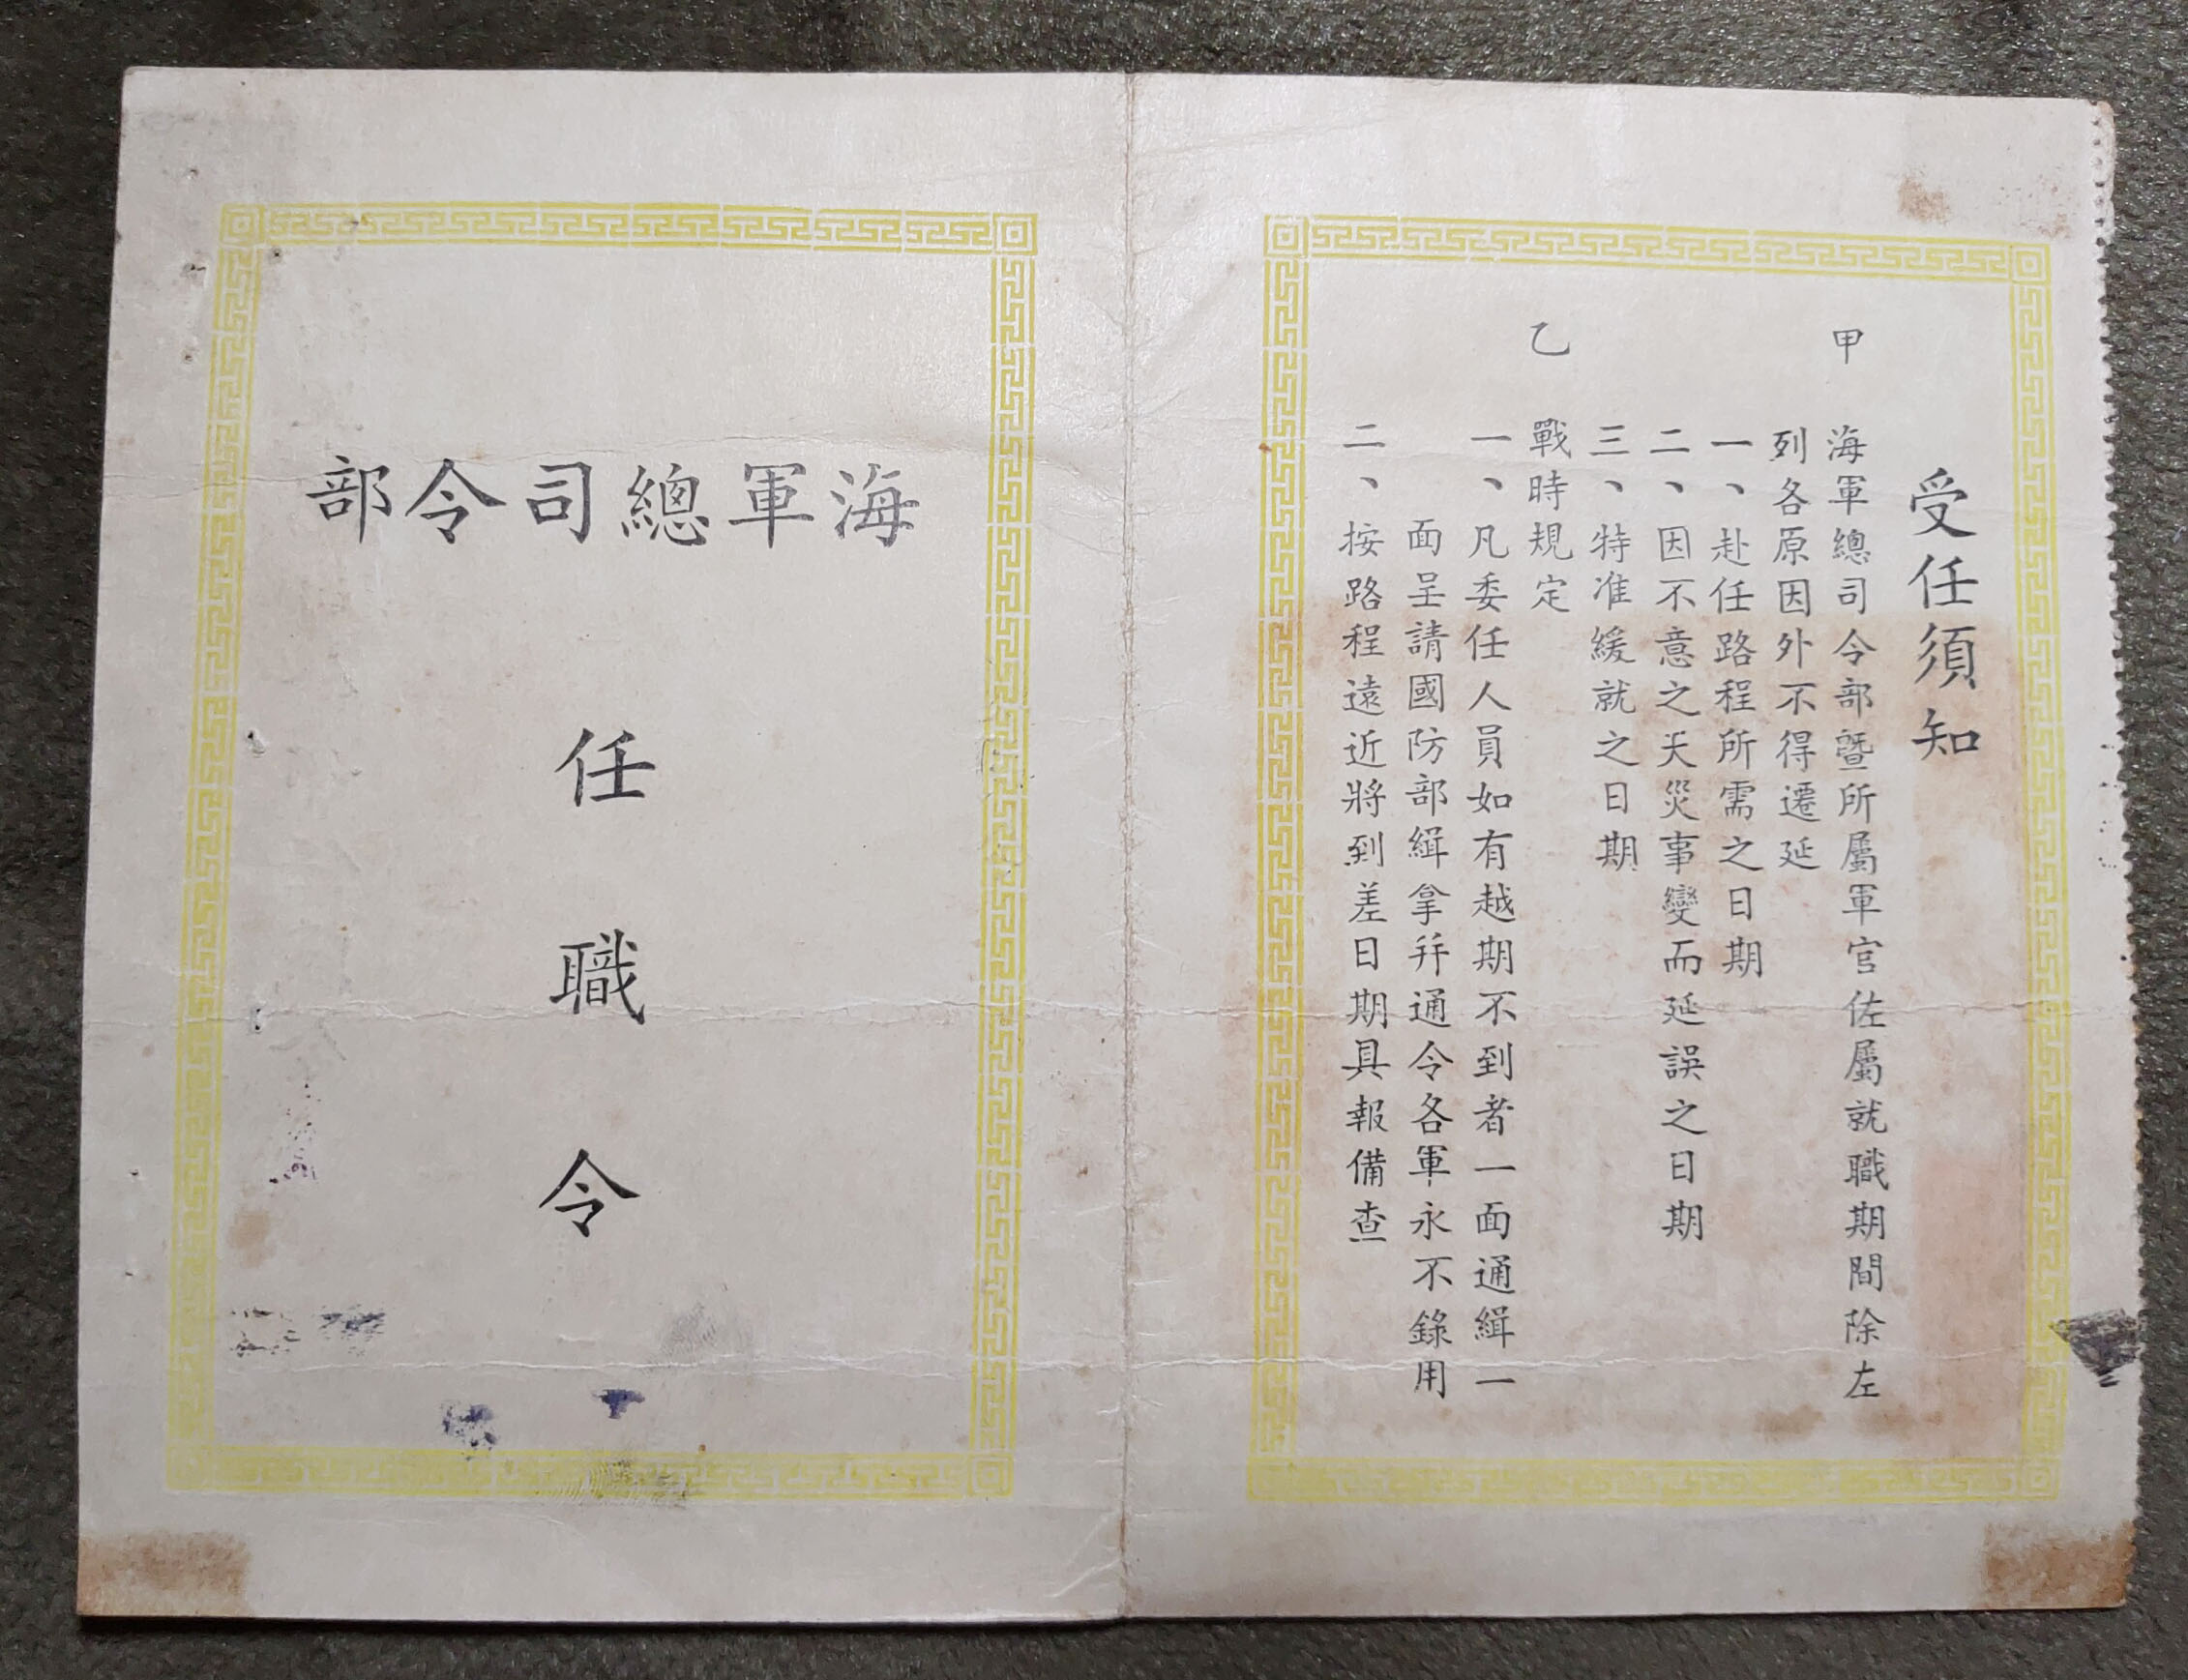 受任須知
甲
海軍總司令部暨所屬軍官佐屬就職期間除左
列各原因外不得遷延
一、赴任路程所需之日期
二、因不意之天災事變而延誤之日期
三、特准緩就之日期
乙
戰時規定
一、凡委任人員如有越期不到者一面通緝一
面呈請國防部緝拿并通令各軍永不錄用
二、按路程遠近將到差日期具報備查
海軍總司令部
任職令